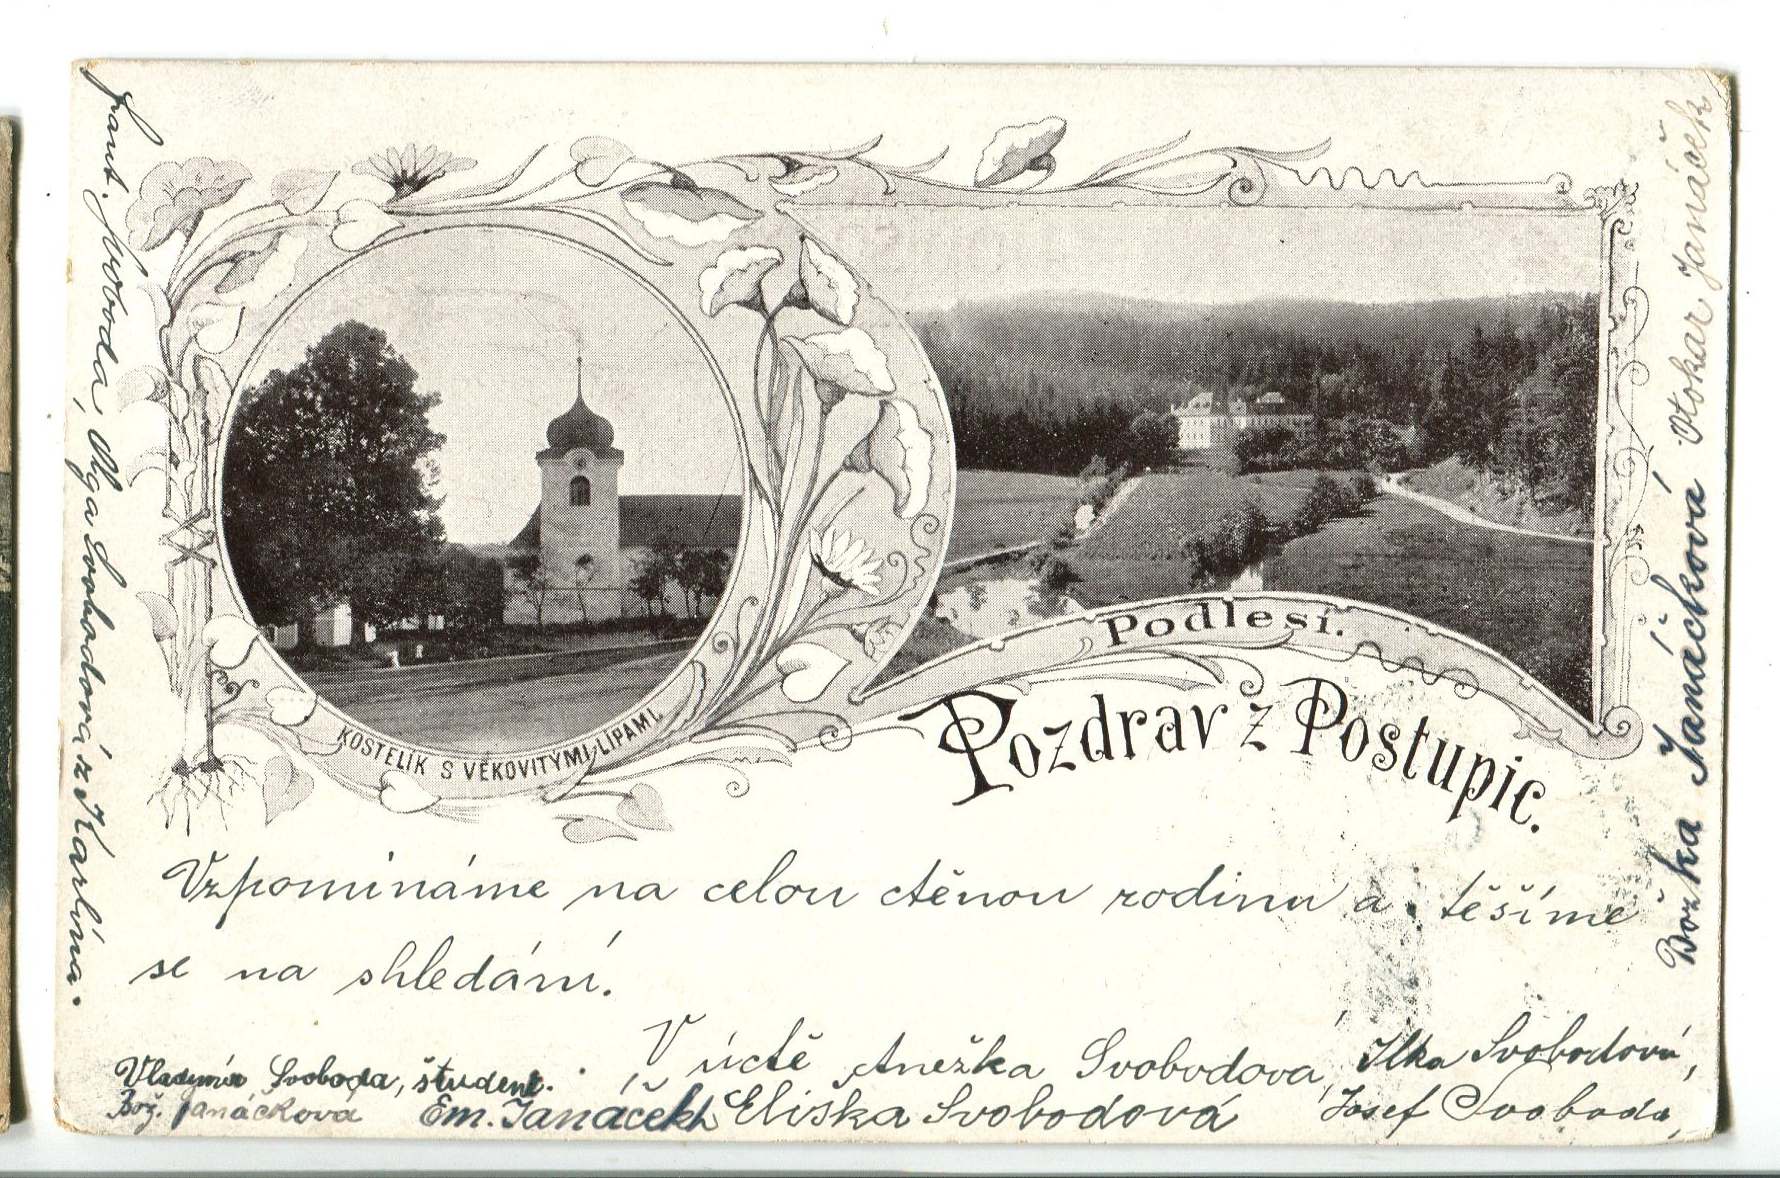 KOSTELÍK S VĚKOVITÝMI LIPAMI.
Podlesí.
Pozdrav z Postupic.
Vzpomínáme na celou ctěnou rodinu a těšíme
se na shledání.
V úctě Anežka Svobodová, Ilka Svobodová,
Vladimír Svoboda, študent.
Eliška Svobodová Josef Svoboda,
Bož. Janáčková Em. Janáček
Frant. Svoboda, Olga Svobodová z Karlína.
Božka Janáčková Otokar Janáček